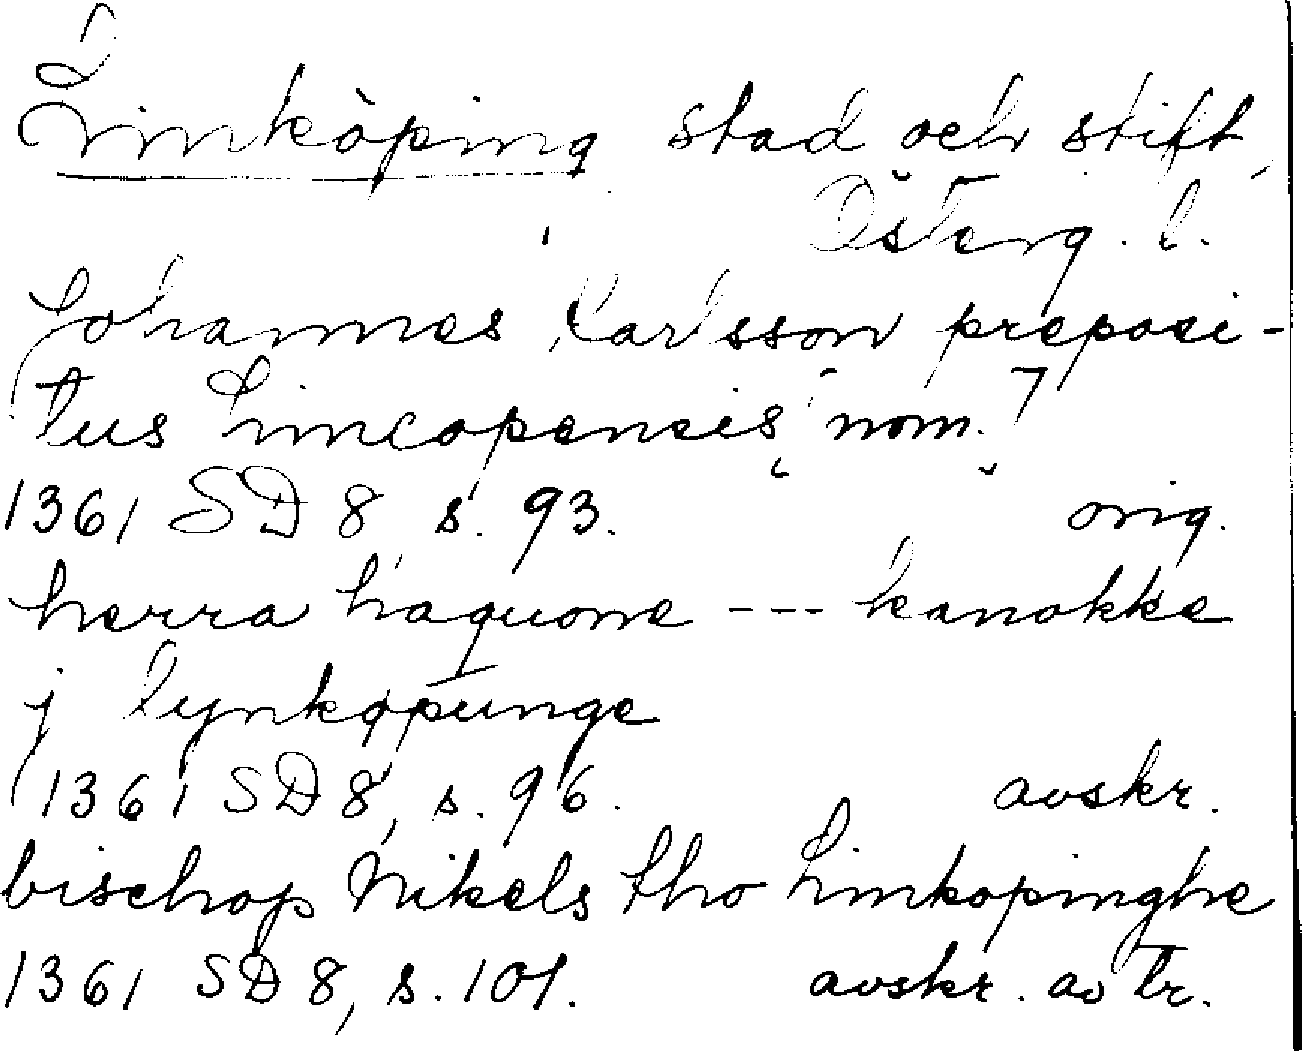 Linköping stad och stift,
Österg. l.
Johannes Karlsson preposi-
tus Lincopensis [nom.]
1361 SD 8, s. 93. orig.
herra haquone --- kanokke
j lynkøpunge
1361 SD 8, s. 96. avskr.
bischop Nikels tho Linkopinghe
1361 SD 8, s. 101. avskr. av tr.